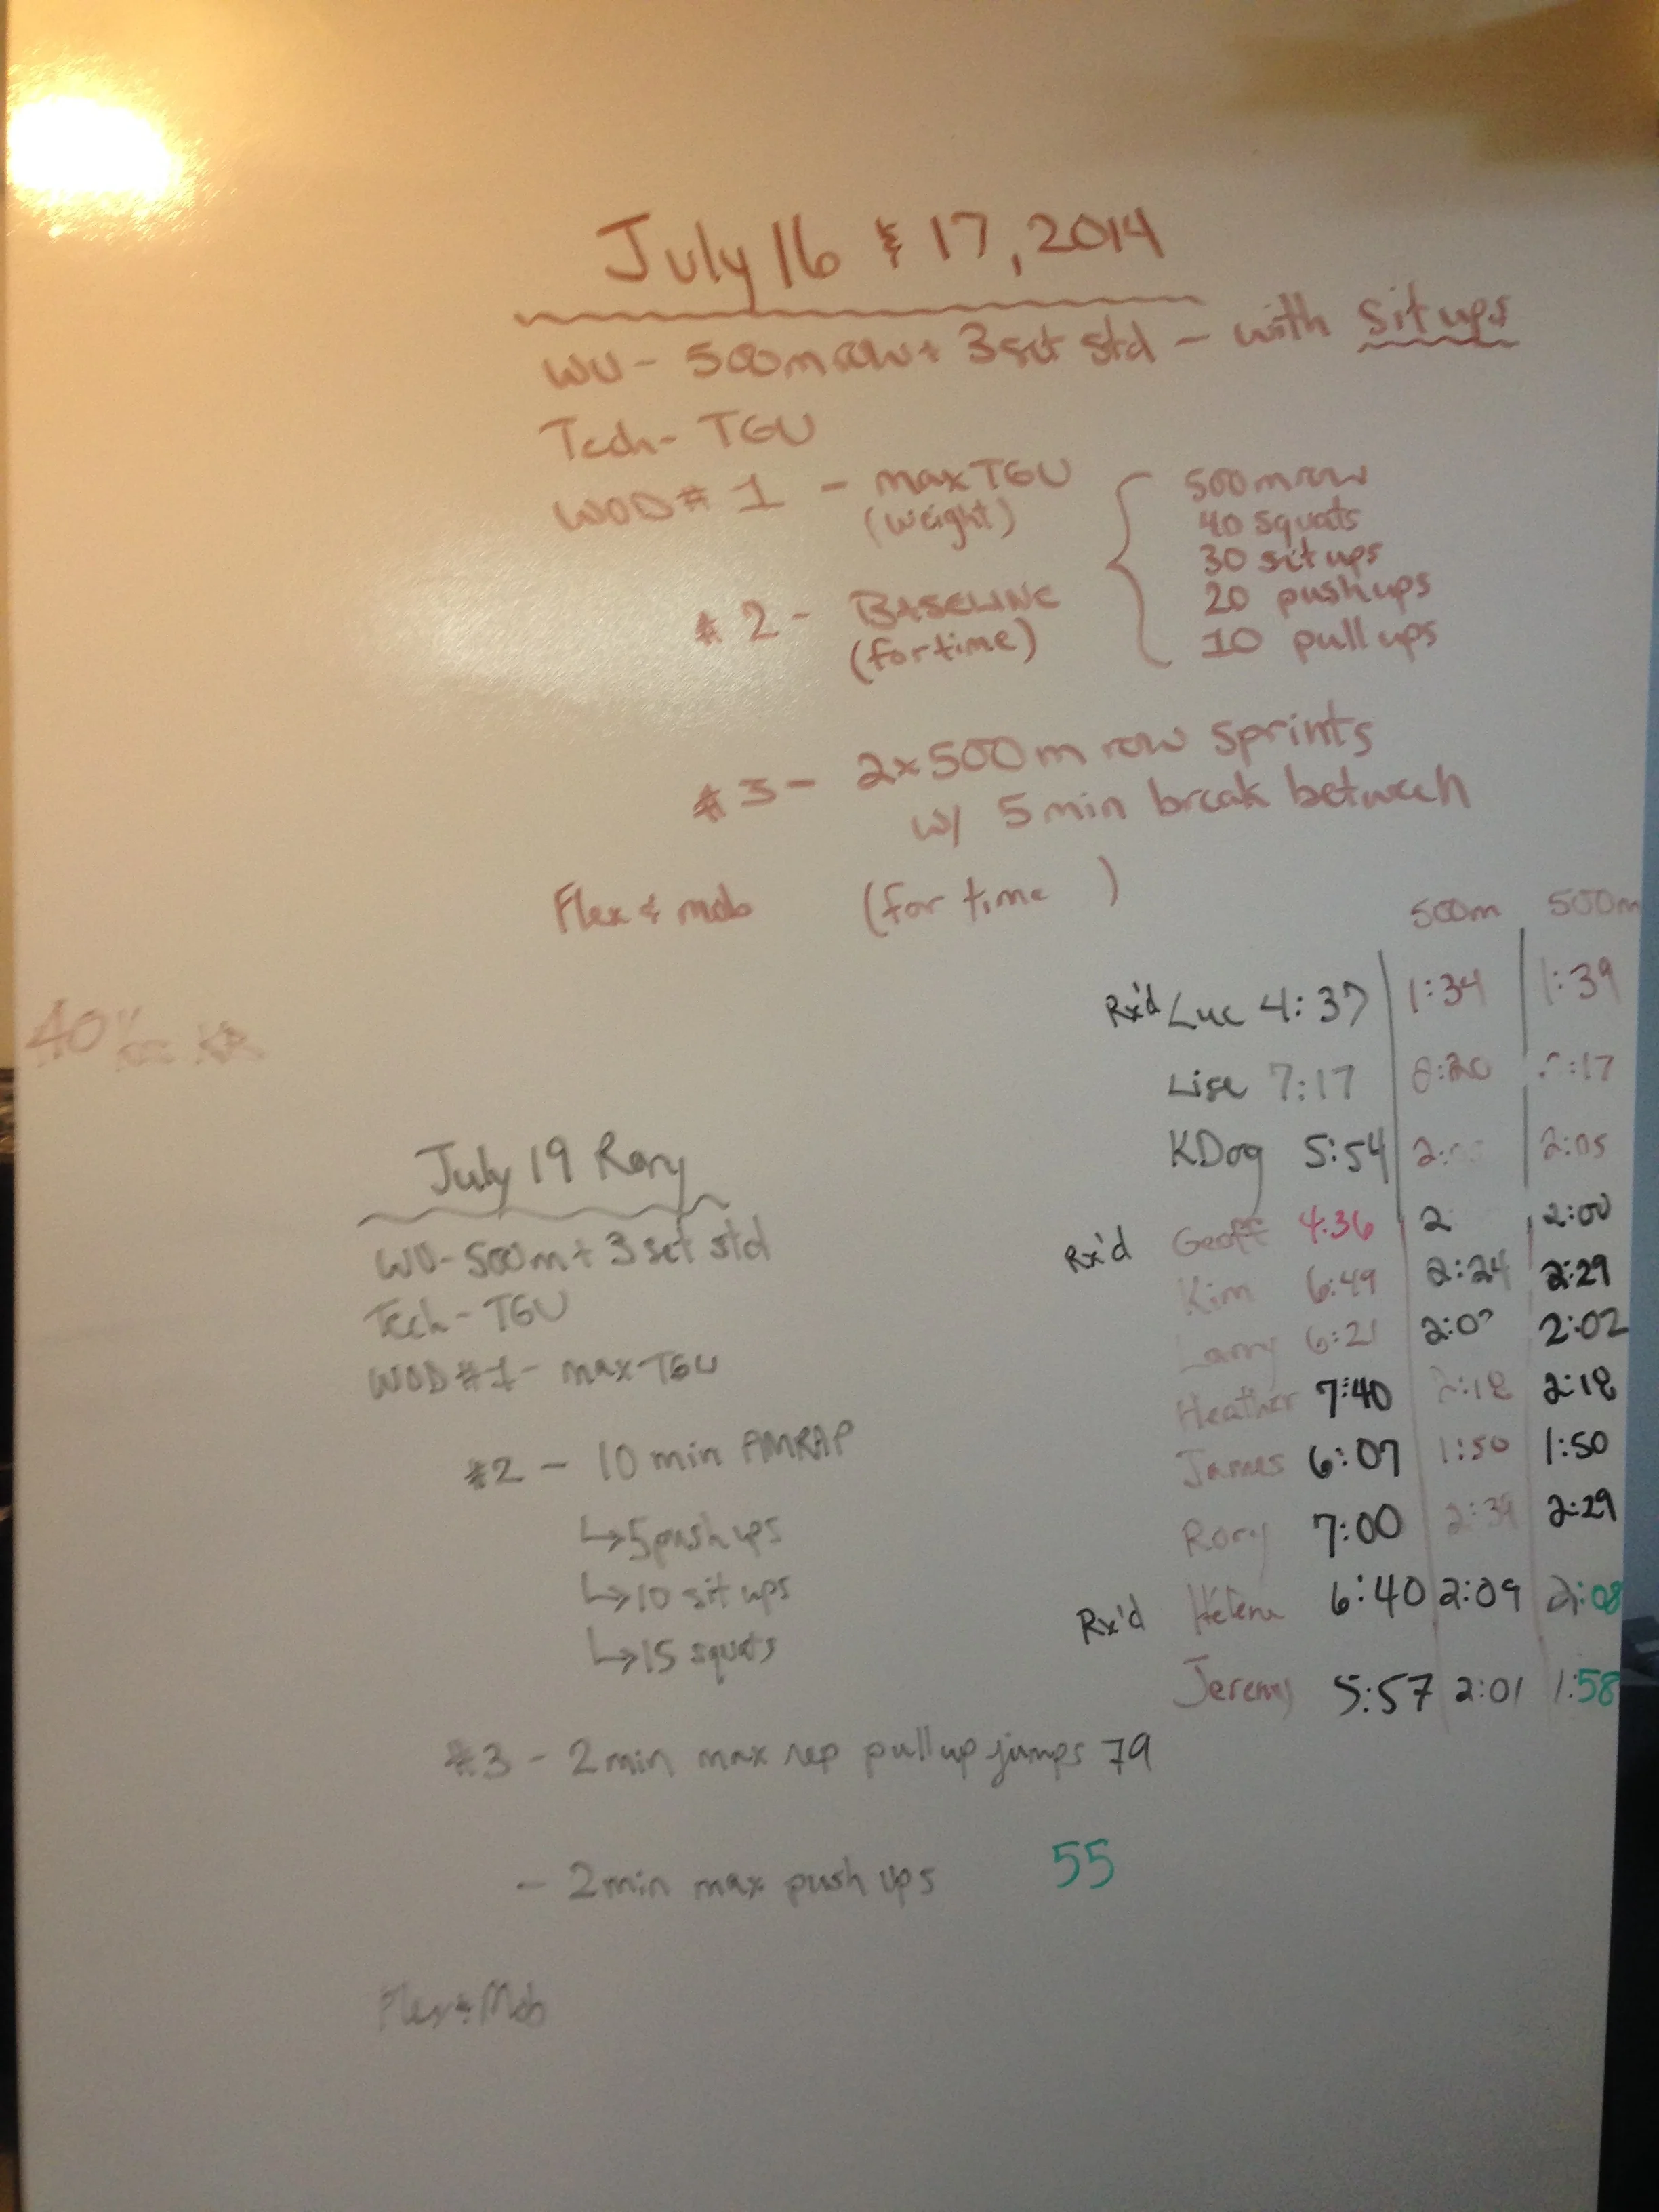 July 16 & 17, 2014
WU - 500m row + 3 set std - with sit ups
Tech - TGU
WOD # 1 - max TGU
(weight)
# 2 - BASELINE
(for time)
500m row
40 squats
30 sit ups
20 push ups
10 pull ups
# 3 - 2x500m row sprints
w/ 5 min break between
Flex & mob (for time )
500m 500m
Rx'd Luc 4:37 1:34 1:39
Lise 7:17 :17
KDog 5:54 2: 2:05
Rx'd Geoff 4:36 2 2:00
Kim 6:49 2:24 2:29
Larry 6:21 2:02
Heather 7:40 2:18 2:18
James 6:07 1:50 1:50
Rory 7:00 2:29
Rx'd Hélène 6:40 2:09 2:08
Jeremy 5:57 2:01 1:58
40
July 19 Rory
WU - 500m + 3 set std
Tech - TGU
WOD # 1 - max TGU
#2 - 10 min AMRAP
↳ 5 push ups
↳ 10 sit ups
↳ 15 squats
#3 - 2 min max rep pull up jumps 79
- 2 min max push ups 55
Flex & Mob